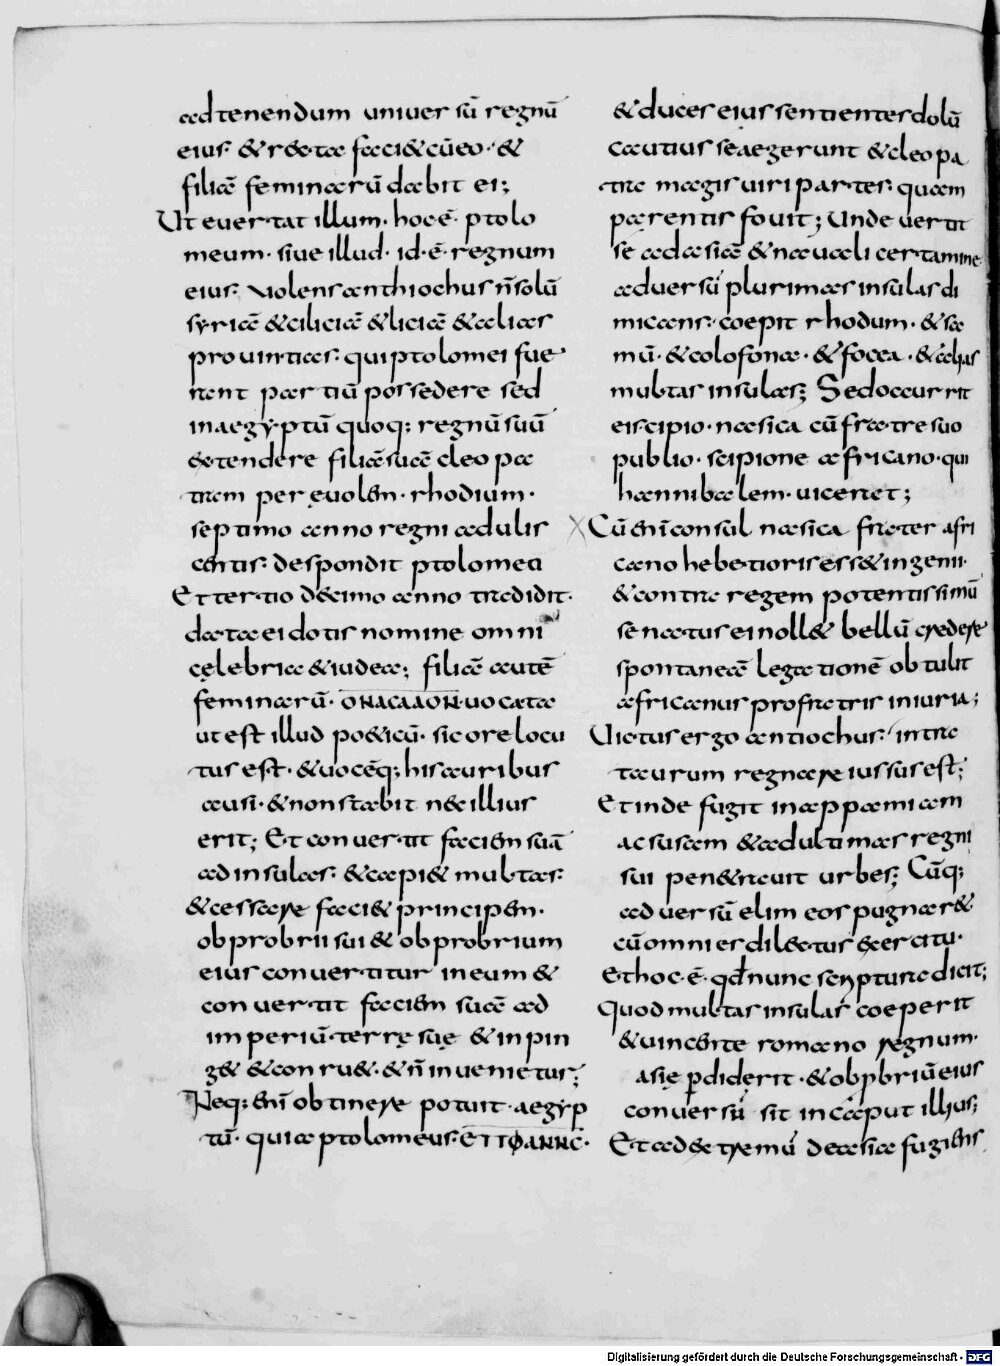 ad tenendum univer sū regnū
eius· & recta faci& cū eo· &
filiā feminarū dabit ei;
Ut evertat illum· hoc ē· ptolo
meum· sive illud· id· ē· regnum
eius· violens anthiochus n̄ solū
syriā & ciliciā & liciā & alias
provintias· qui ptolomei fue
rant partiū possedere sed
in aegyptū quoq; regnū suū
extendere filiā suā cleopa
tram per evolen· rhodium·
septimo anno regni adulis
centis· despondit ptolomei
Et tertio decimo anno tradidit·
data ei dotis nomine omni
cęlebria & iudea; filiā autē
feminarū· ONACAAON· vocata
ut est illud po&icū· sic ore locu
tus est· & vocēq; his auribus
ausi· & non stabit nec illius
erit; Et convertit faciem suā
ad insulas· & capi& multas·
& cessare faci& principem·
obprobrii sui & obprobrium
eius convertitur in eum &
convertit faciem suā ad
imperiū terrę suę & inpin
g& & conru&· & n̄ invenietur;
Neq; enī obtinere potuit· aegyp
tū· quia ptolomeus· ЄΠΙΦΑΝΗC·
& duces eius sentientes dolū
cautius se aegerunt & cleopa
tra magis viri partes· quam
parentis fovit; Unde vertit
se ad asiā & navali certamine
adversū plurimas insulas di
micans· coepit rhodum· & sa
mū· & colofona· & focea· & alias
multas insulas; Sed occurrit
ei scipio· nasica cū fratre suo
publio· scipione africano· qui
hannibalem· vicerat;
Cū enī consul nasica frater afri
cano hebetioris ess& ingenii·
& contra regem potentissimū
senatus ei noll& bellū credere
spontaneā legationē obtulit
africanus pro fratris iniuria;
Victus ergo antiochus· intra
taurum regnare iussus est;
Et inde fugit in appamiam
ac susam & ad ultimas regni
sui pen&ravit urbes; Cūq;
adversū elimeos pugnar&
cū omni est del&us exercitu·
Et hoc· ē· qđ nunc scriptura dicit;
Quod multas insulas coeperit
& vincente romano regnum·
asię ꝑdiderit· & obpbriū eius
conversū sit in caput illius;
Et ad extremū de asia fugiens